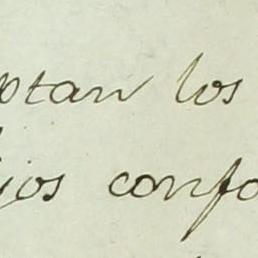 ptan los
jos confo